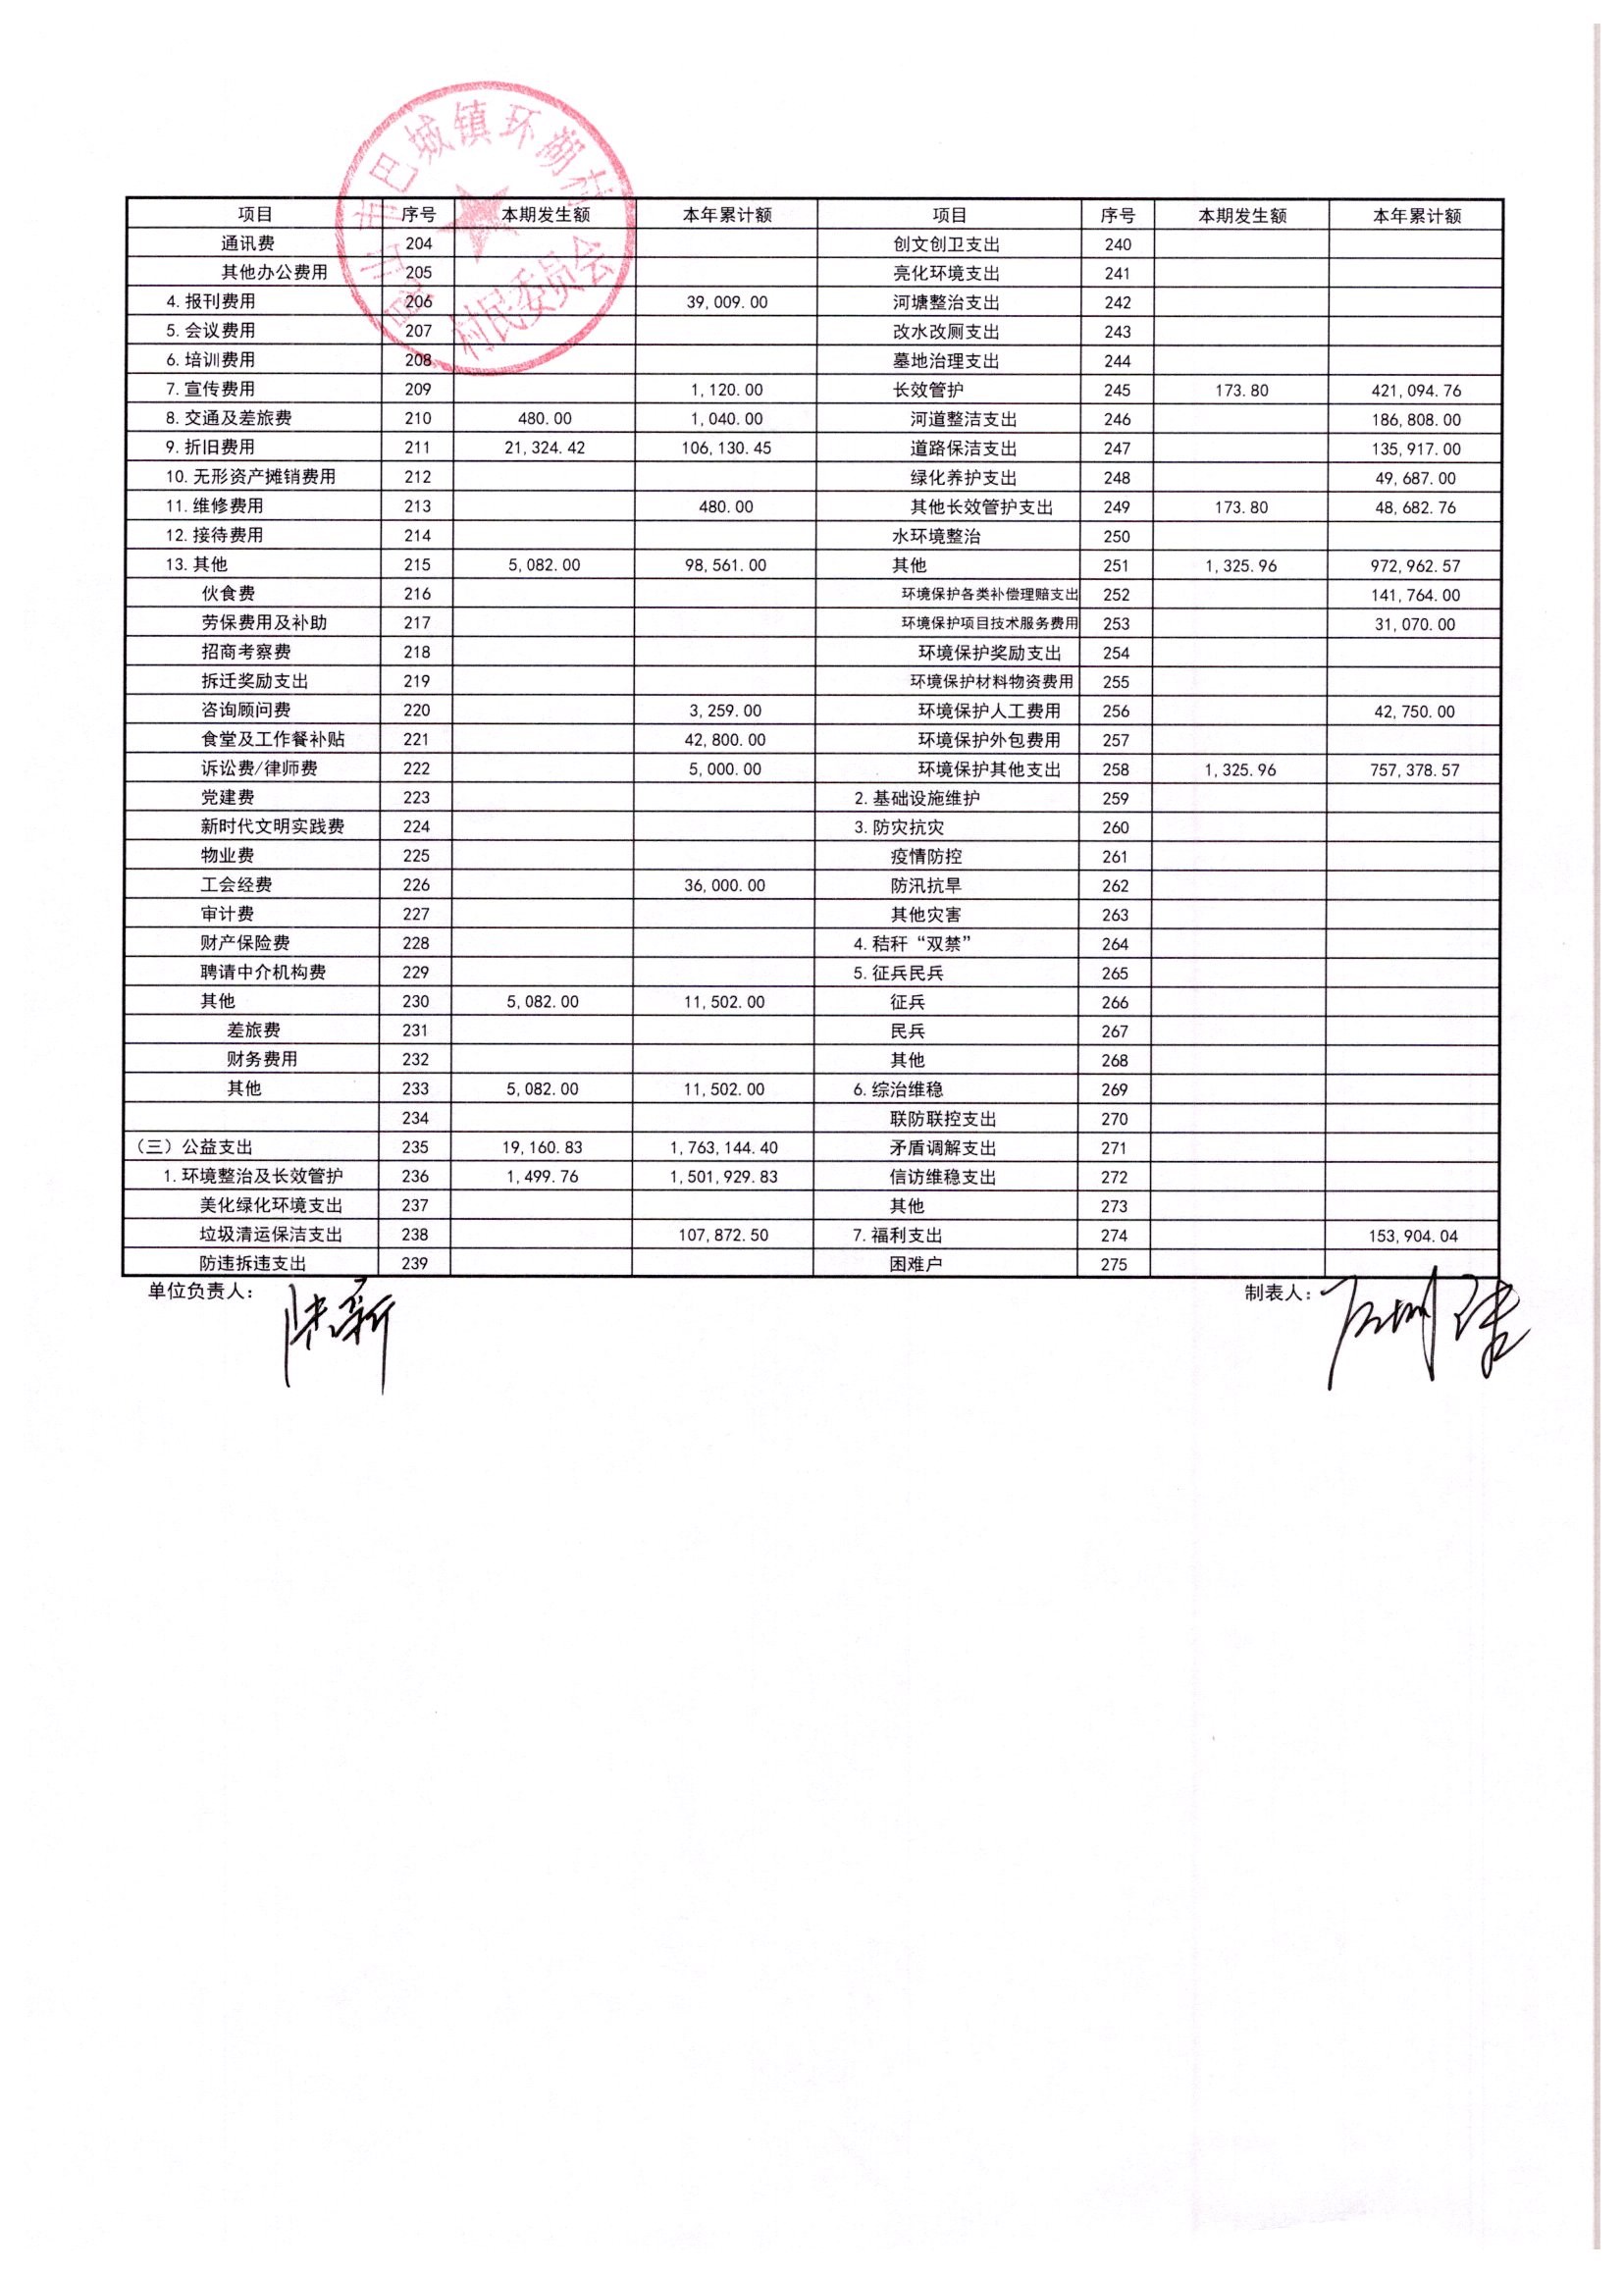 昆山市巴城镇环湖村
村民委员会
项目 序号 本期发生额 本年累计额 项目 序号 本期发生额 本年累计额
通讯费 204 创文创卫支出 240
其他办公费用 205 亮化环境支出 241
4.报刊费用 206 39,009.00 河塘整治支出 242
5.会议费用 207 改水改厕支出 243
6.培训费用 208 墓地治理支出 244
7.宣传费用 209 1,120.00 长效管护 245 173.80 421,094.76
8.交通及差旅费 210 480.00 1,040.00 河道整洁支出 246 186,808.00
9.折旧费用 211 21,324.42 106,130.45 道路保洁支出 247 135,917.00
10.无形资产摊销费用 212 绿化养护支出 248 49,687.00
11.维修费用 213 480.00 其他长效管护支出 249 173.80 48,682.76
12.接待费用 214 水环境整治 250
13.其他 215 5,082.00 98,561.00 其他 251 1,325.96 972,962.57
伙食费 216 环境保护各类补偿理赔支出 252 141,764.00
劳保费用及补助 217 环境保护项目技术服务费用 253 31,070.00
招商考察费 218 环境保护奖励支出 254
拆迁奖励支出 219 环境保护材料物资费用 255
咨询顾问费 220 3,259.00 环境保护人工费用 256 42,750.00
食堂及工作餐补贴 221 42,800.00 环境保护外包费用 257
诉讼费/律师费 222 5,000.00 环境保护其他支出 258 1,325.96 757,378.57
党建费 223 2.基础设施维护 259
新时代文明实践费 224 3.防灾抗灾 260
物业费 225 疫情防控 261
工会经费 226 36,000.00 防汛抗旱 262
审计费 227 其他灾害 263
财产保险费 228 4.秸秆“双禁” 264
聘请中介机构费 229 5.征兵民兵 265
其他 230 5,082.00 11,502.00 征兵 266
差旅费 231 民兵 267
财务费用 232 其他 268
其他 233 5,082.00 11,502.00 6.综治维稳 269
234 联防联控支出 270
（三）公益支出 235 19,160.83 1,763,144.40 矛盾调解支出 271
1.环境整治及长效管护 236 1,499.76 1,501,929.83 信访维稳支出 272
美化绿化环境支出 237 其他 273
垃圾清运保洁支出 238 107,872.50 7.福利支出 274 153,904.04
防违拆违支出 239 困难户 275
单位负责人： 制表人：